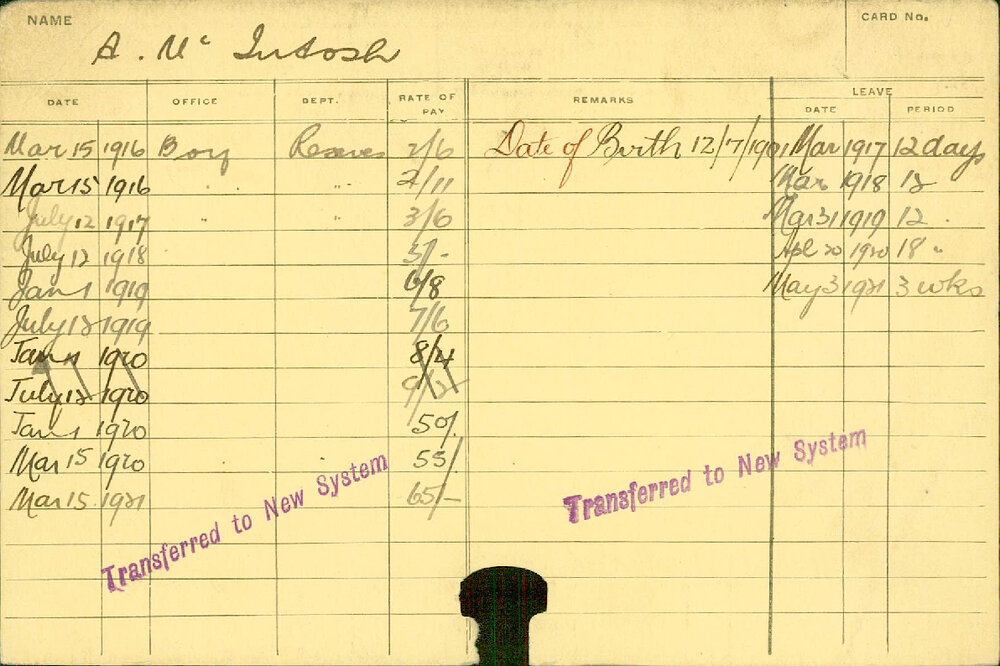 NAME A. Mc Intosh CARD No.
DATE OFFICE DEPT. RATE OF PAY REMARKS LEAVE DATE PERIOD
Mar 15 1916 Boy Reserves 2/6 Date of Birth 12/7/1901 Mar 1917 12 days
Mar 15 1916 " " 2/11 Mar 1918 12
July 12 1917 " " 3/6 Mar 31 1919 12 "
July 12 1918 5/- Apl 20 1920 18 "
Jan 1 1919 6/8 May 3 1921 3 wks
July 12 1919 7/6
Jan 1 1920 8/4
July 12 1920 9/2
Jan 1 1920 50/-
Mar 15 1920 55/
Mar 15 1921 65/-
Transferred to New System
Transferred to New System